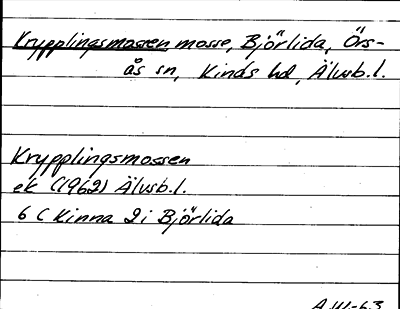 Krypplingsmossen mosse, Björlida, Örs-
ås sn, Kinds hd, Älvsb.l.
Krypplingsmossen
ek (1962) Älvsb.l.
6 C Kinna 2i Björlida